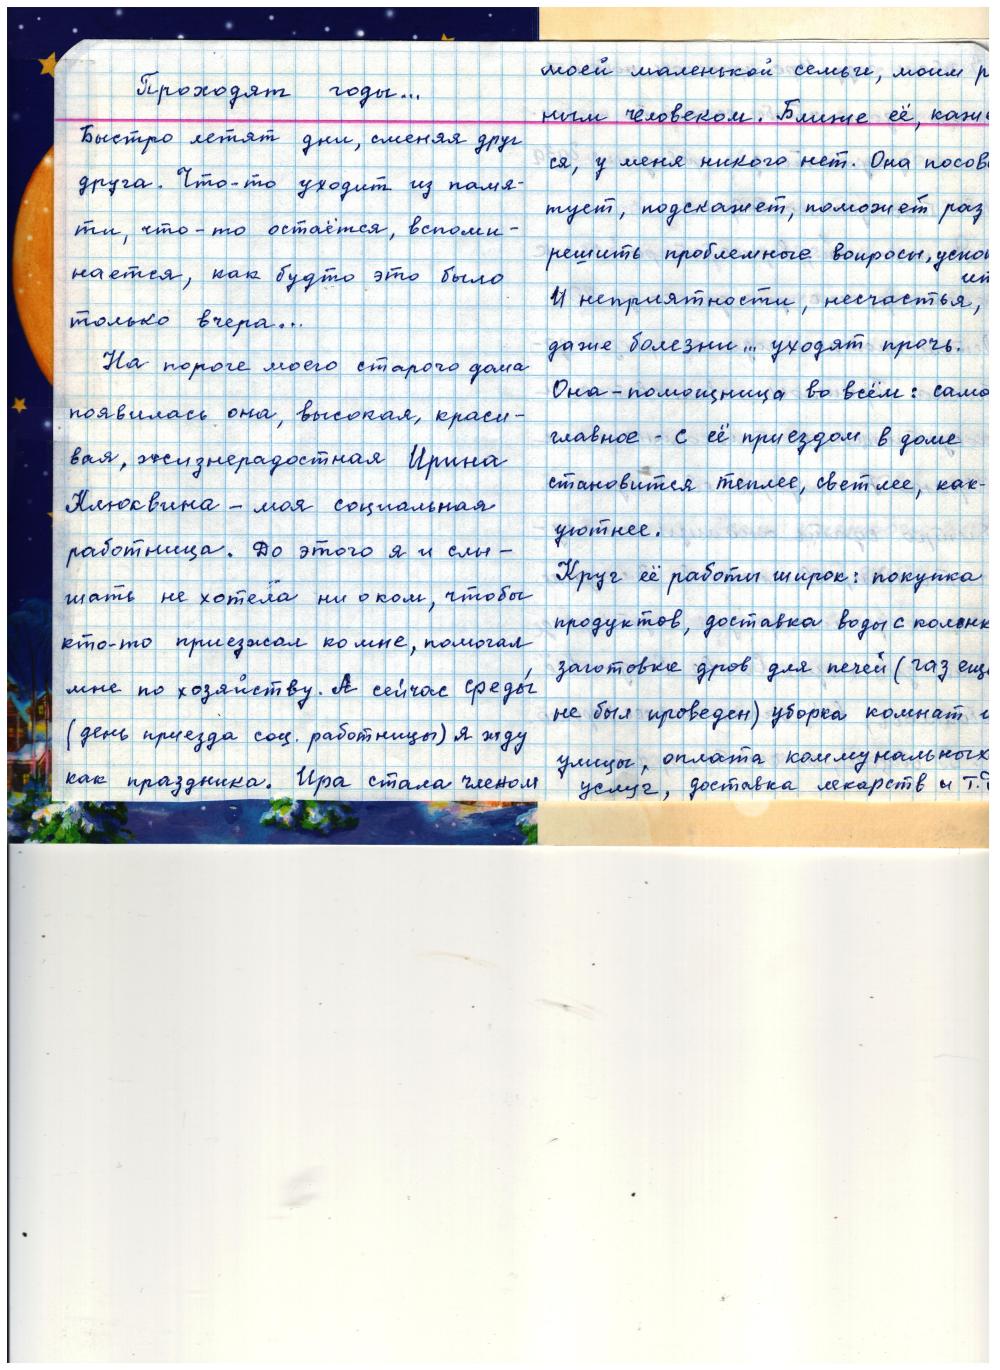 Проходят годы...
Быстро летят дни, сменяя друг
друга. Что-то уходит из памя-
ти, что-то остаётся, вспоми-
нается, как будто это было
только вчера...
На пороге моего старого дома
появилась она, высокая, краси-
вая, жизнерадостная Ирина
Клюквина - моя социальная
работница. До этого я и слы-
шать не хотела ни о ком, чтобы
кто-то приезжал ко мне, помогал
мне по хозяйству. А сейчас среды
(день приезда соц. работницы) я жду
как праздника. Ира стала членом
моей маленькой семьи, моим р
ным человеком. Ближе её, каже
ся, у меня никого нет. Она посове
тует, подскажет, поможет раз
решить проблемные вопросы, успок
ит
И неприятности, несчастья,
даже болезни... уходят прочь.
Она - помощница во всём: само
главное - с её приездом в доме
становится теплее, светлее, как-
уютнее.
Круг её работы широк: покупка
продуктов, доставка воды с колонк
заготовка дров для печей (газ ещё
не был проведен) уборка комнат и
улицы, оплата коммунальных
услуг, доставка лекарств и т.д